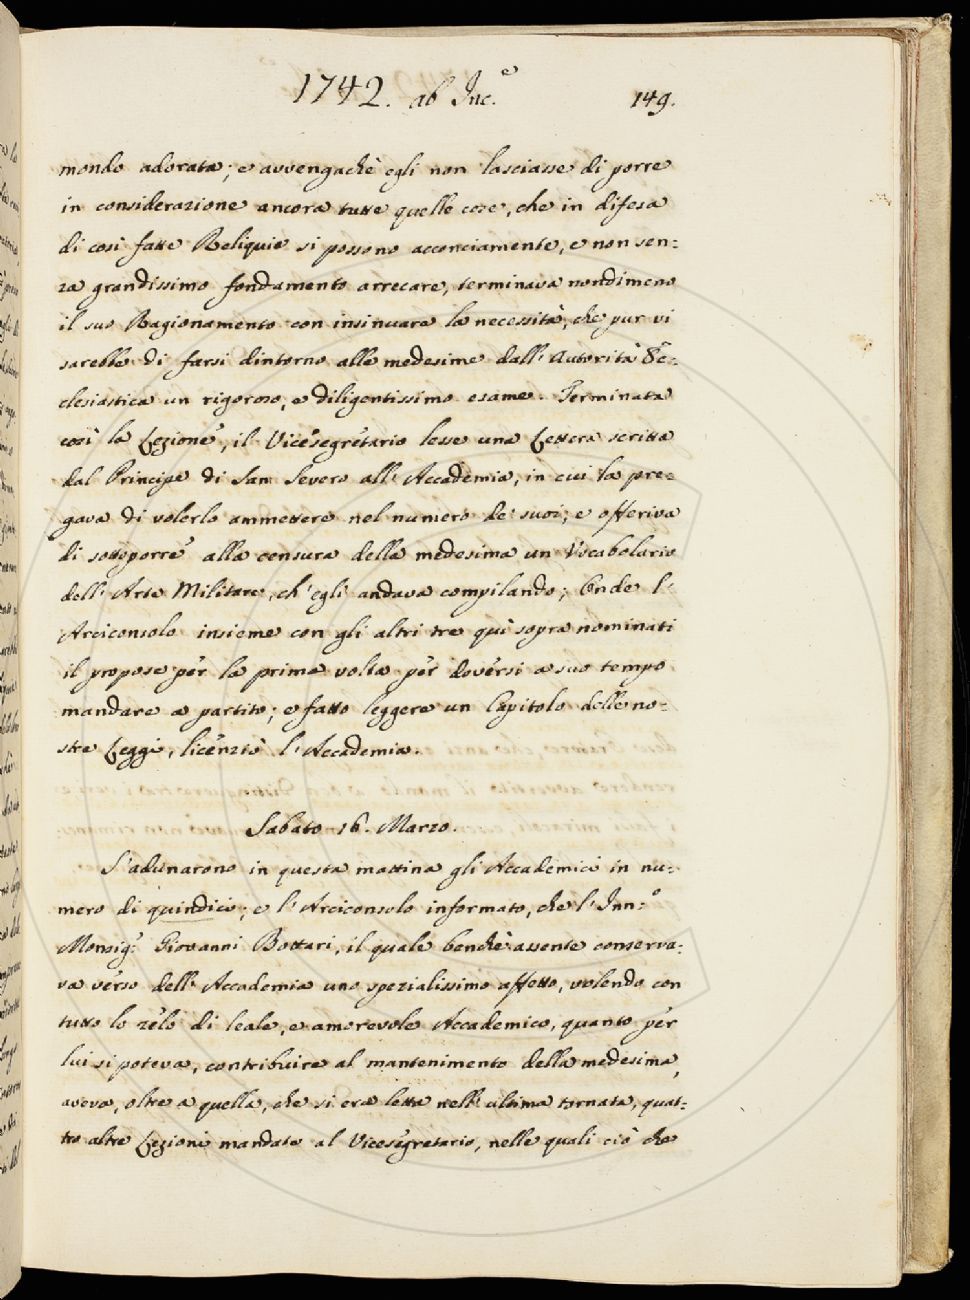 1742. ab Inc.e 149.
mondo adorata; e avvengachè egli non lasciasse di porre
in considerazione ancora tutte quelle cose, che in difesa
di così fatte Reliquie si possono acconciamente, e non sen=
za grandissimo fondamento arrecare, terminava nondimeno
il suo Ragionamento con insinuare la necessità, che pur vi
sarebbe di farsi dintorno alle medesime dall' Autorità Ec=
clesiastica un rigoroso, e diligentissimo esame. Terminata
così la Lezione, il Vicesegretario lesse una Lettera scritta
dal Principe di San Severo all' Accademia, in cui la pre=
gava di volerlo ammettere nel numero de' suoi; e offeriva
di sottoporre alla censura della medesima un Vocabolario
dell' Arte Militare, ch' egli andava compilando; Onde l'
Arciconsolo insieme con gli altri tre quì sopra nominati
il propose per la prima volta per doversi a suo tempo
mandare a partito; e fatto leggere un Capitolo delle no=
stre Leggi, licenziò l' Accademia.
Sabato 16. Marzo.
S' adunarono in questa mattina gli Accademici in nu=
mero di quindici; e l' Arciconsolo informato, che l' Inn=o
Monsig.r Giovanni Bottari, il quale benchè assente conserva=
va verso dell' Accademia uno spezialissimo affetto, volendo con
tutto lo zelo di leale, e amorevole Accademico, quanto per
lui si poteva, contribuire al mantenimento della medesima,
aveva, oltre a quella, che si era letta nell' ultima tornata, quat=
tro altre Lezioni mandate al Vicesegretario, nelle quali ciò che